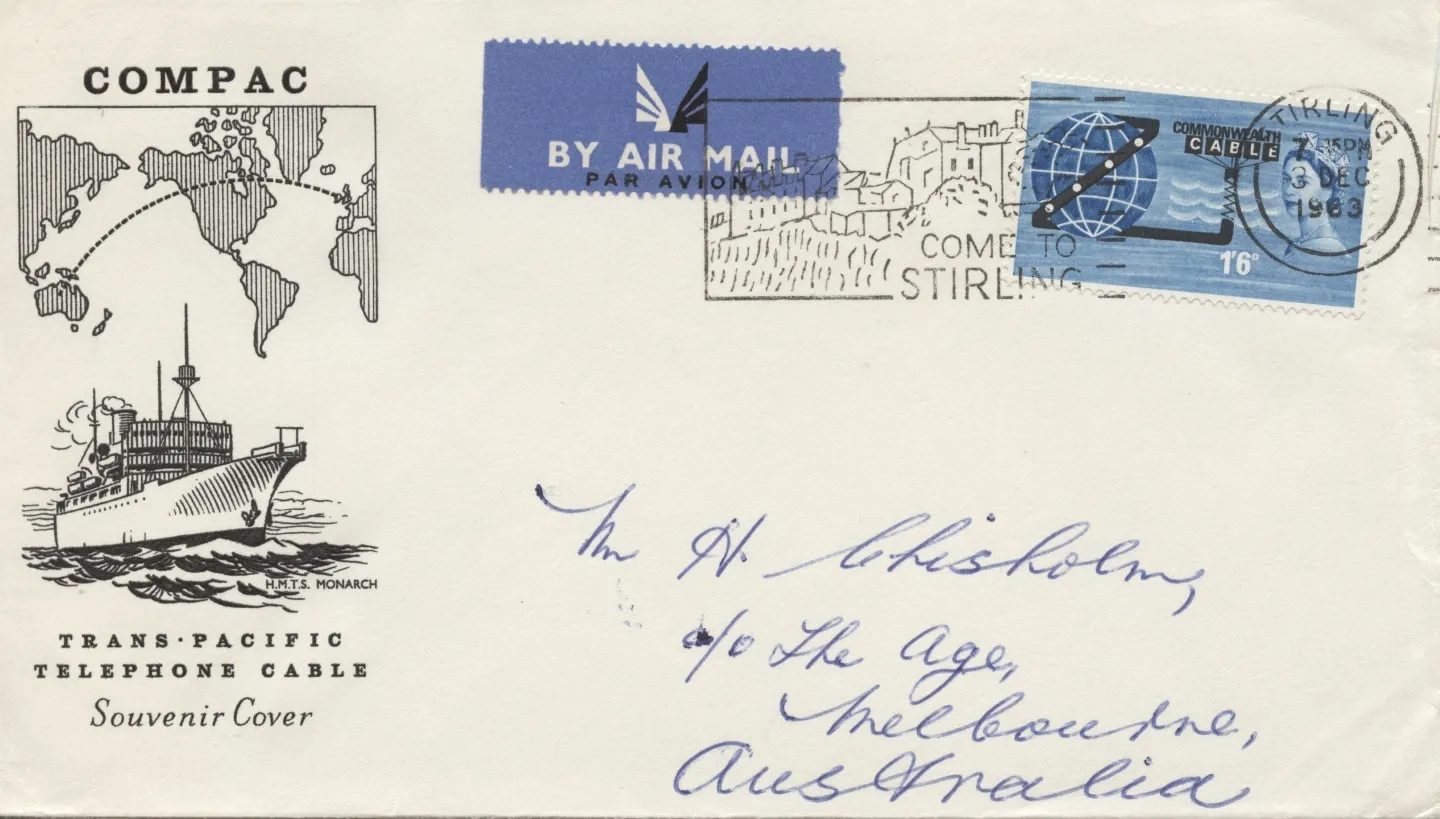 COMPAC
BY AIR MAIL
PAR AVION
COME TO
STIRLING
COMMONWEALTH
CABLE
1'6ᴰ
STIRLING
3 DEC
1963
H.M.T.S. MONARCH
TRANS·PACIFIC
TELEPHONE CABLE
Souvenir Cover
Mr H. Chisholm,
c/o The Age,
Melbourne,
Australia